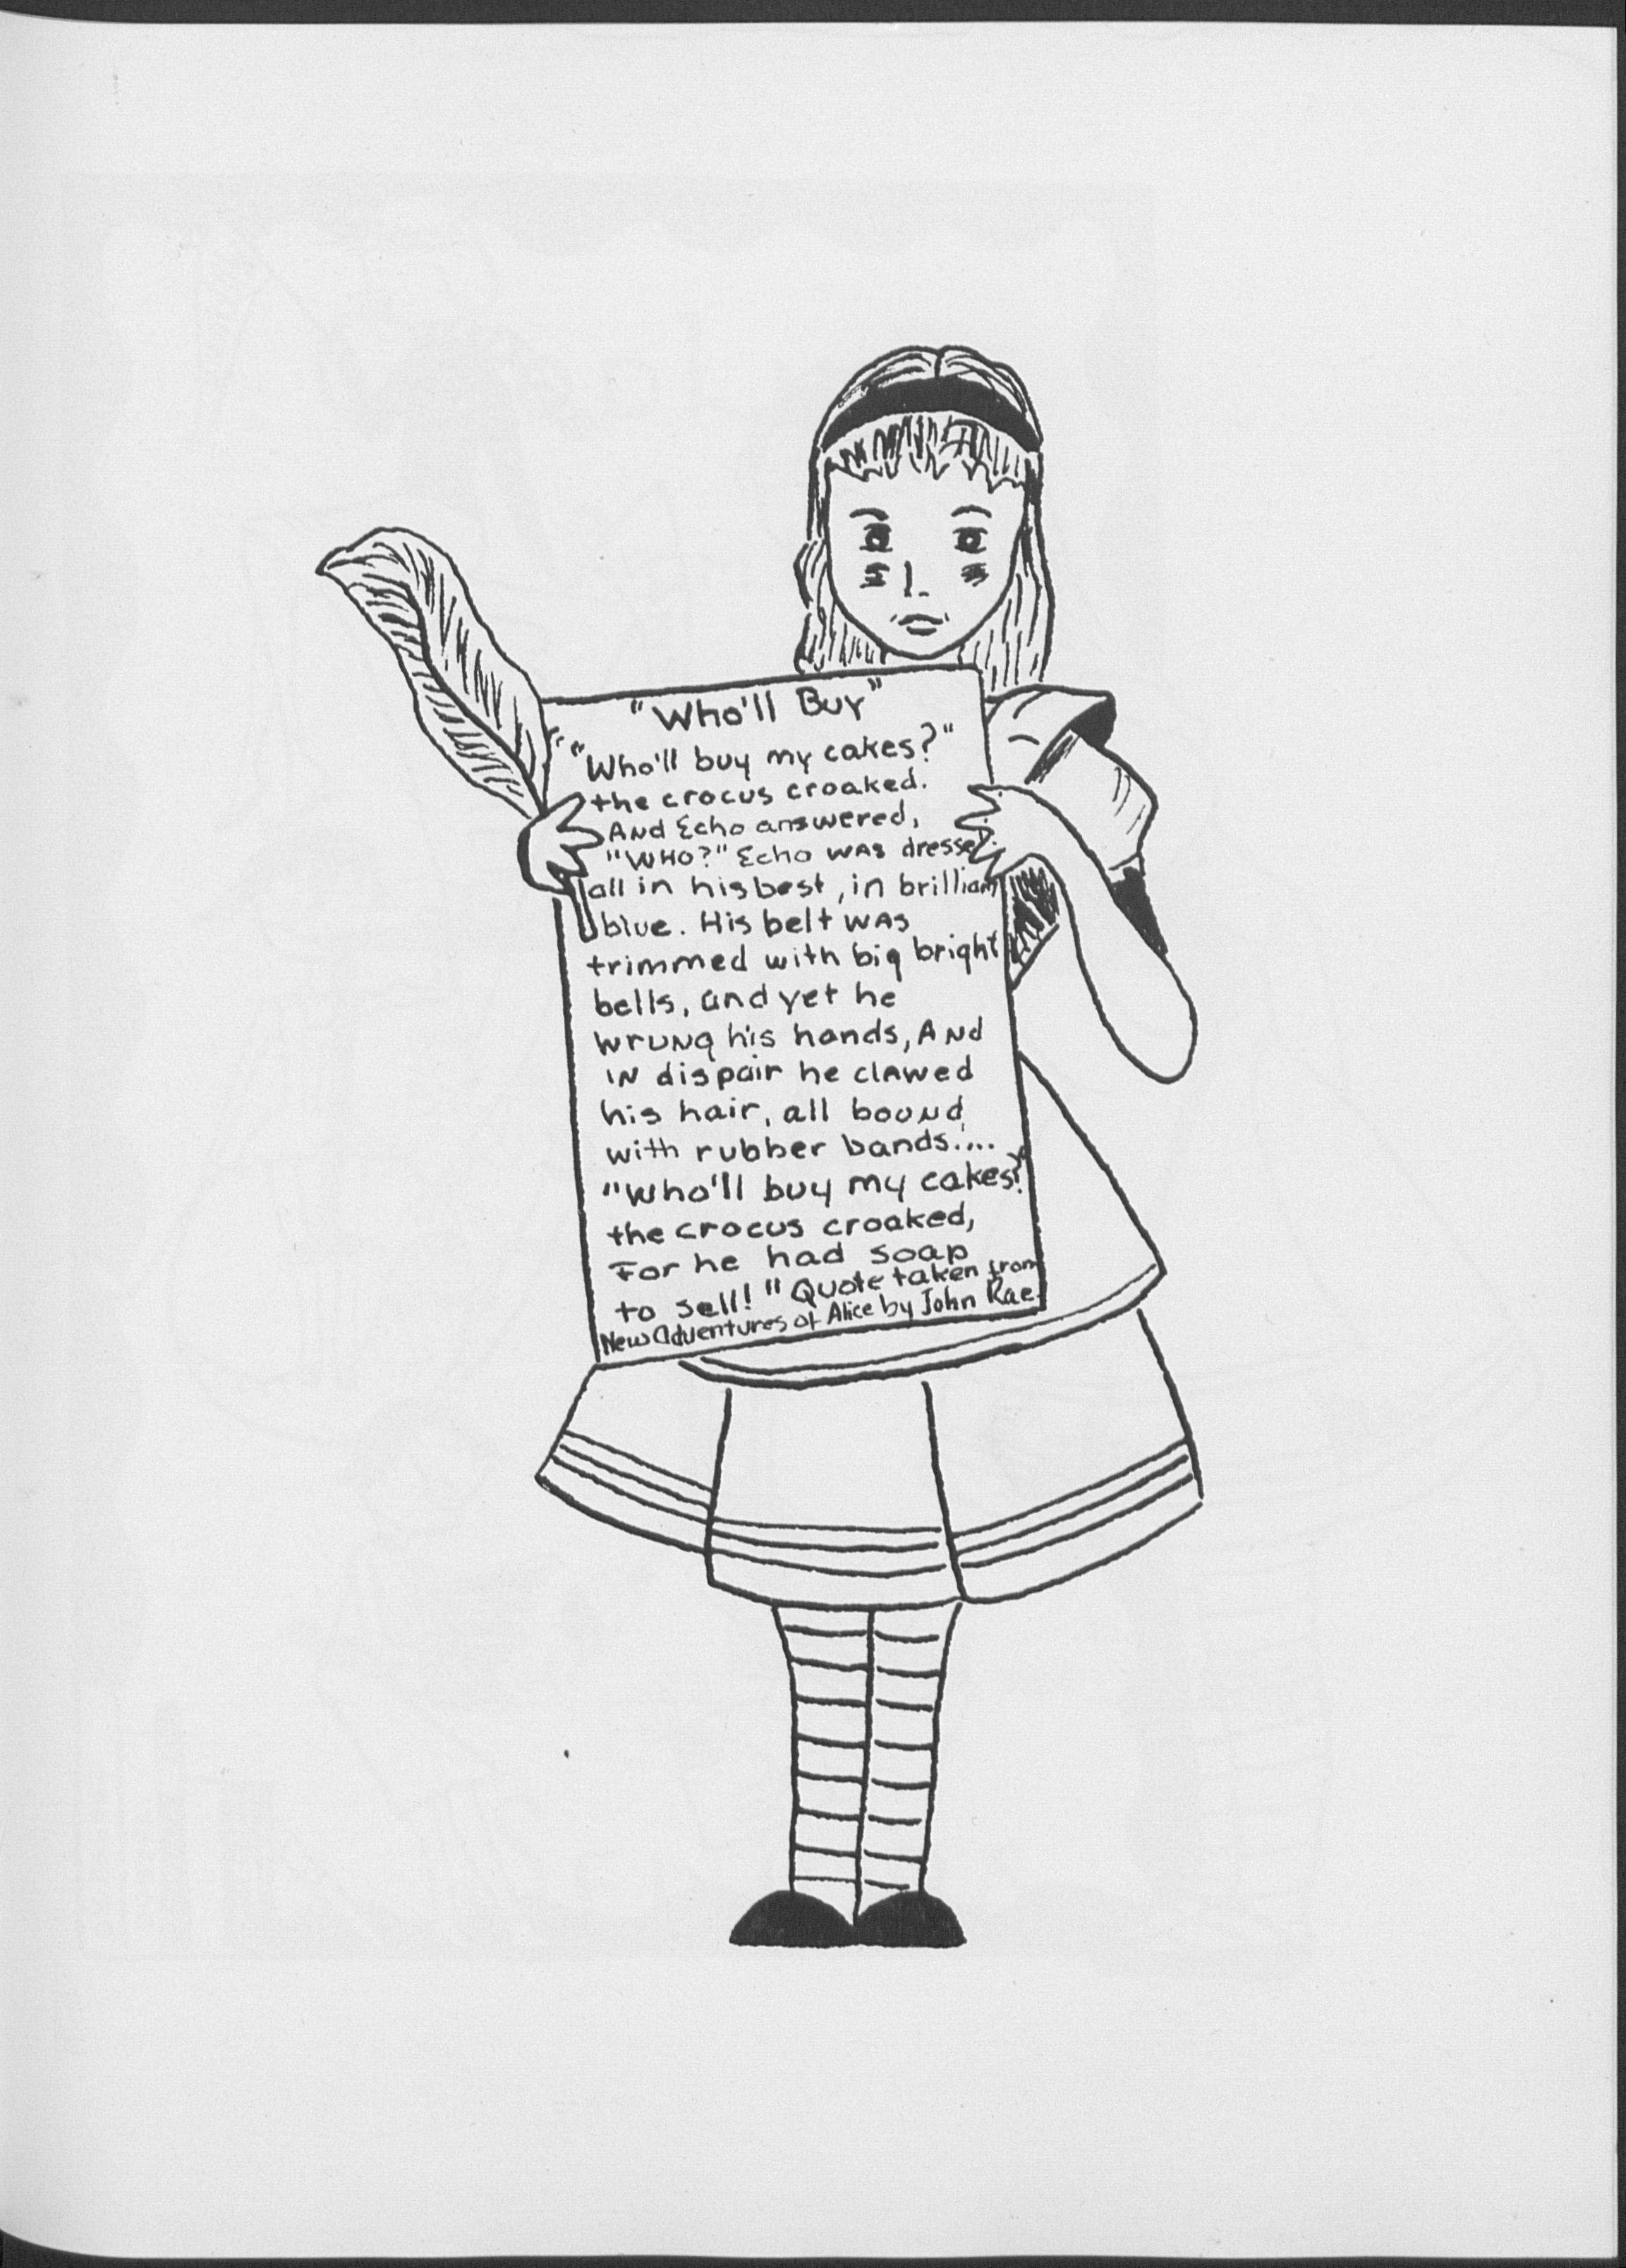 "Who'll Buy"
""Who'll buy my cakes?"
the crocus croaked.
AND Echo answered,
"WHO?" Echo WAS dressed
all in his best, in brilliant
blue. His belt WAS
trimmed with big bright
bells, and yet he
wrung his hands, AND
IN dispair he clawed
his hair, all bound
with rubber bands....
"Who'll buy my cakes?"
the crocus croaked,
For he had soap
to sell!" Quote taken from
New Adventures of Alice by John Rae.